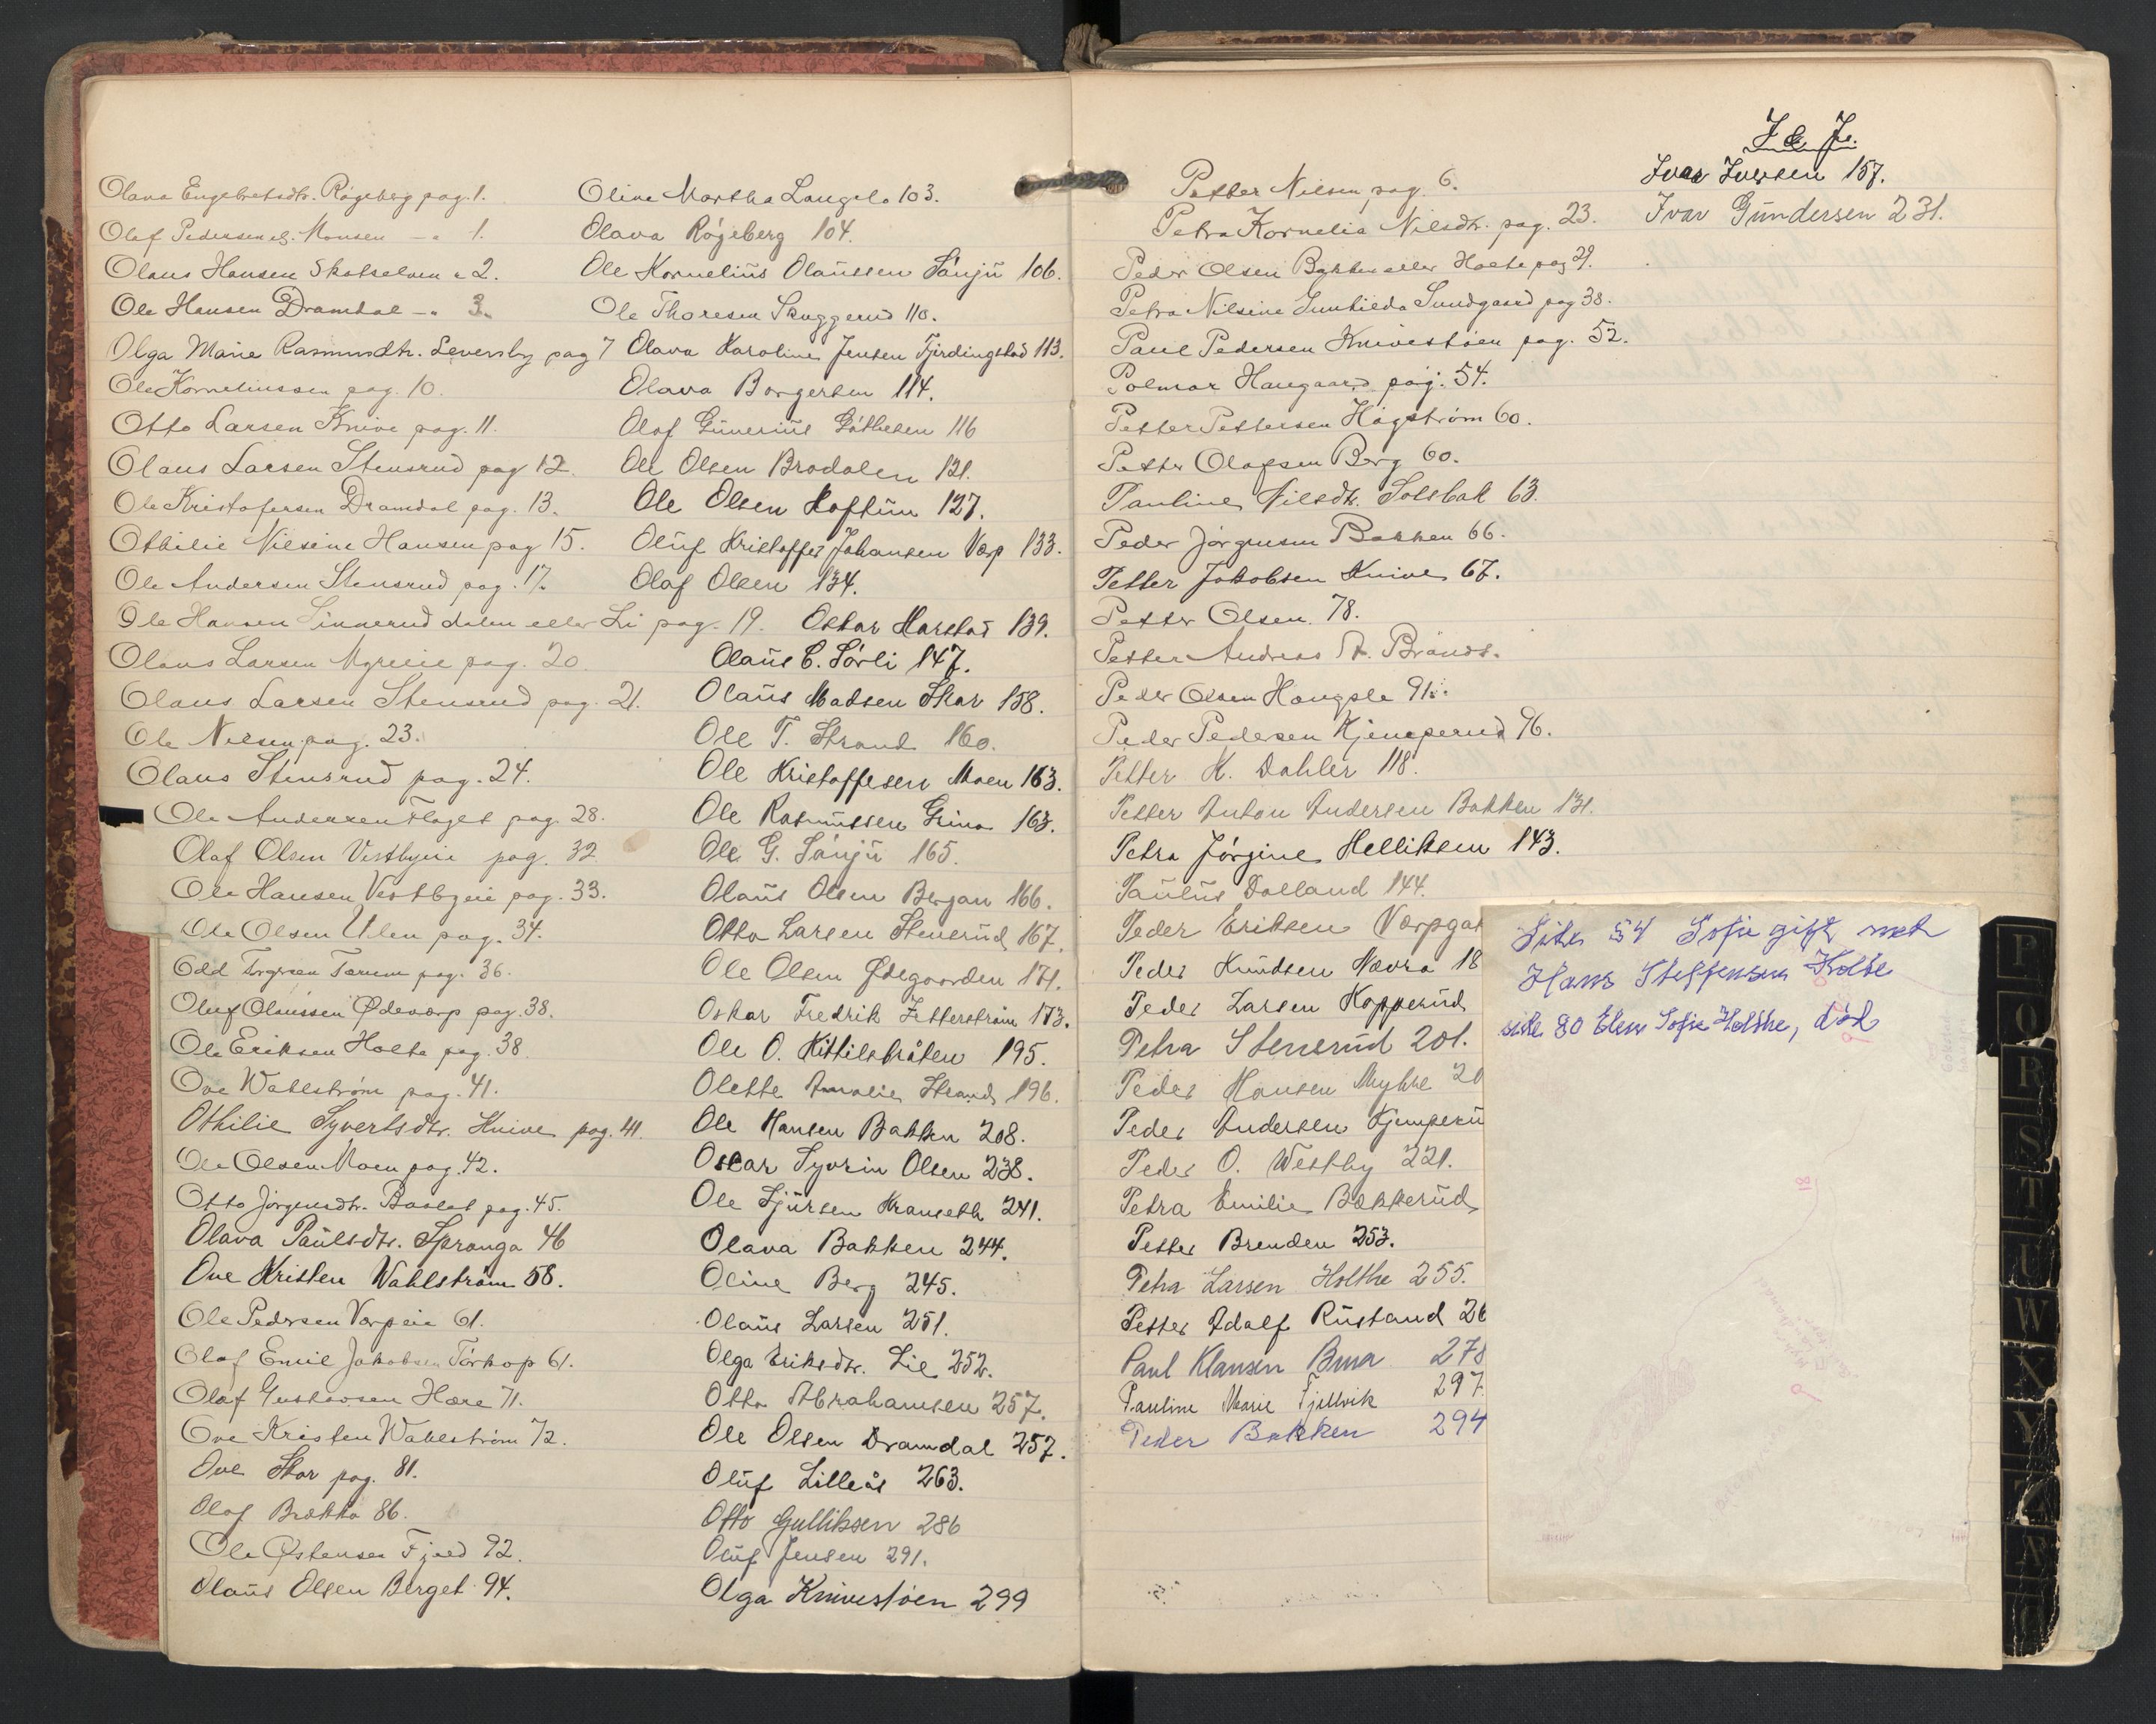 Olava Engebretsdtr. Røgeberg pag. 1.
Olaf Pedersen el. Monsen — " 1.
Olaus Hansen Skotselven " 2.
Ole Hansen Dramdal — " 3.
Olga Marie Rasmusdtr. Leversby pag 7
Ole Korneliussen pag. 10.
Otto Larsen Knive pag. 11.
Olaus Larsen Stensrud pag 12.
Ole Kristofersen Dramdal pag. 13.
Othilie Nilsine Hansen pag 15.
Ole Andersen Stensrud pag. 17.
Ole Hansen Sinnerud dalen eller Li pag. 19.
Olaus Larsen Myreie pag. 20.
Olaus Larsen Stensrud pag. 21.
Ole Nilsen pag. 23.
Olaus Stensrud pag. 24.
Ole Andersen Flaget pag. 28.
Olaf Olsen Vestbyeie pag. 32
Ole Hansen Vestbyeie pag. 33.
Ole Olsen Ulen pag. 34.
Odd Torgersen pag. 36.
Oluf Olaussen Ødevarp pag. 38.
Ole Eriksen Holte pag. 38
Ove Wahlstrøm pag. 41.
Othilie Syvertsdtr. Knive pag. 41.
Ole Olsen Moen pag. 42.
Otto Jørgensdtr. pag. 45.
Olava Paulsdtr. Spranga 46
Ove Kristen Wahlstrøm 58.
Ole Pedersen Varpeie 61.
Olaf Emil Jakobsen Tørkop 61.
Olaf Gustavsen Hære 71.
Ove Kristen Wahlstrøm 72.
Ove Skar pag. 81.
Olaf Brække 86.
Ole Østensen Fjeld 92.
Olaus Olsen Berget 94.
Oline Martha Langelo 103.
Olava Røgeberg 104.
Ole Kornelius Olaussen Sånju 106.
Ole Thoresen Skuggerud 110.
Olava Karoline Jensen Fjerdingstad 113.
Olava Borgersen 114.
Olaf Gunerius Gåthesen 116
Ole Olsen Brodalen 121.
Ole Olsen Hoftun 127.
Oluf Kristoffer Johansen Varp 133.
Olaf Olsen 134.
Oskar Harstad 139.
Olaus C. Sørli 147.
Olaus Madsen Skar 158.
Ole T. Strand 160.
Ole Kristoffesen Moen 163.
Ole Rasmussen Grina 163.
Ole G. Sånju 165.
Olaus Olsen Bergan 166.
Otto Larsen Stensrud 167.
Ole Olsen Ødegaarden 171.
Oskar Fredrik Zetterstrøm 173.
Ole O. Kittilsbråten 195.
Olette Amalie Strand 196.
Ole Hansen Bakken 208.
Oscar Syvrin Olsen 238.
Ole Sjursen Kranseth 241.
Olava Bakken 244.
Oline Berg 245.
Olaus Larsen 251.
Olga Eriksdtr. Lie 252.
Otto Abrahamsen 257.
Ole Olsen Dramdal 257.
Oluf Lilleås 263.
Otto Gulliksen 286
Oluf Jensen 291.
Olga Knivestøen 299
Petter Nilsen pag. 6.
Petra Kornelia Nilsdtr. pag. 23.
Peder Olsen Bakken eller Holte pag 29.
Petra Nilsine Gunhilda Sundgaard pag 38.
Paul Pedersen Knivestøen pag. 52.
Polmar Haugaard pag. 54.
Petter Pettersen Högström 60.
Petter Olafsen Berg 60.
Pauline Nilsdtr. Solsbak 63.
Peder Jørgensen Bakken 66.
Petter Jakobsen Knive 67.
Petter Olsen 78.
Petter Andreas Brands.
Peder Olsen Haugsle 91.
Peder Pedersen Kjemperud 96.
Petter K. Dahler 118.
Petter Anton Andersen Bakken 131.
Petra Jörgine Helliksen 143.
Paulus Dolland 144.
Peder Eriksen Varpgat
Peder Knudsen Nævra 18
Peder Larsen Kopperud
Petra Stensrud 201.
Peder Hansen Myhre 20
Peder Andersen Kjemperu
Peder O. Westby 221.
Petra Emilie Bækkerud
Petter Brenden 253.
Petra Larsen Holthe 255.
Petter Adolf Rustand 26
Paul Klausen Brua 278
Pauline Marie Fjellvik 297.
Peder Bakken 294
I & J.
Ivar Iversen 157.
Ivar Gundersen 231.
Side 54 Sofie gift med
Hans Steffensen Holte
side 80 Elen Sofie Holthe, død
P
O
R
S
T
U
W
X
Y